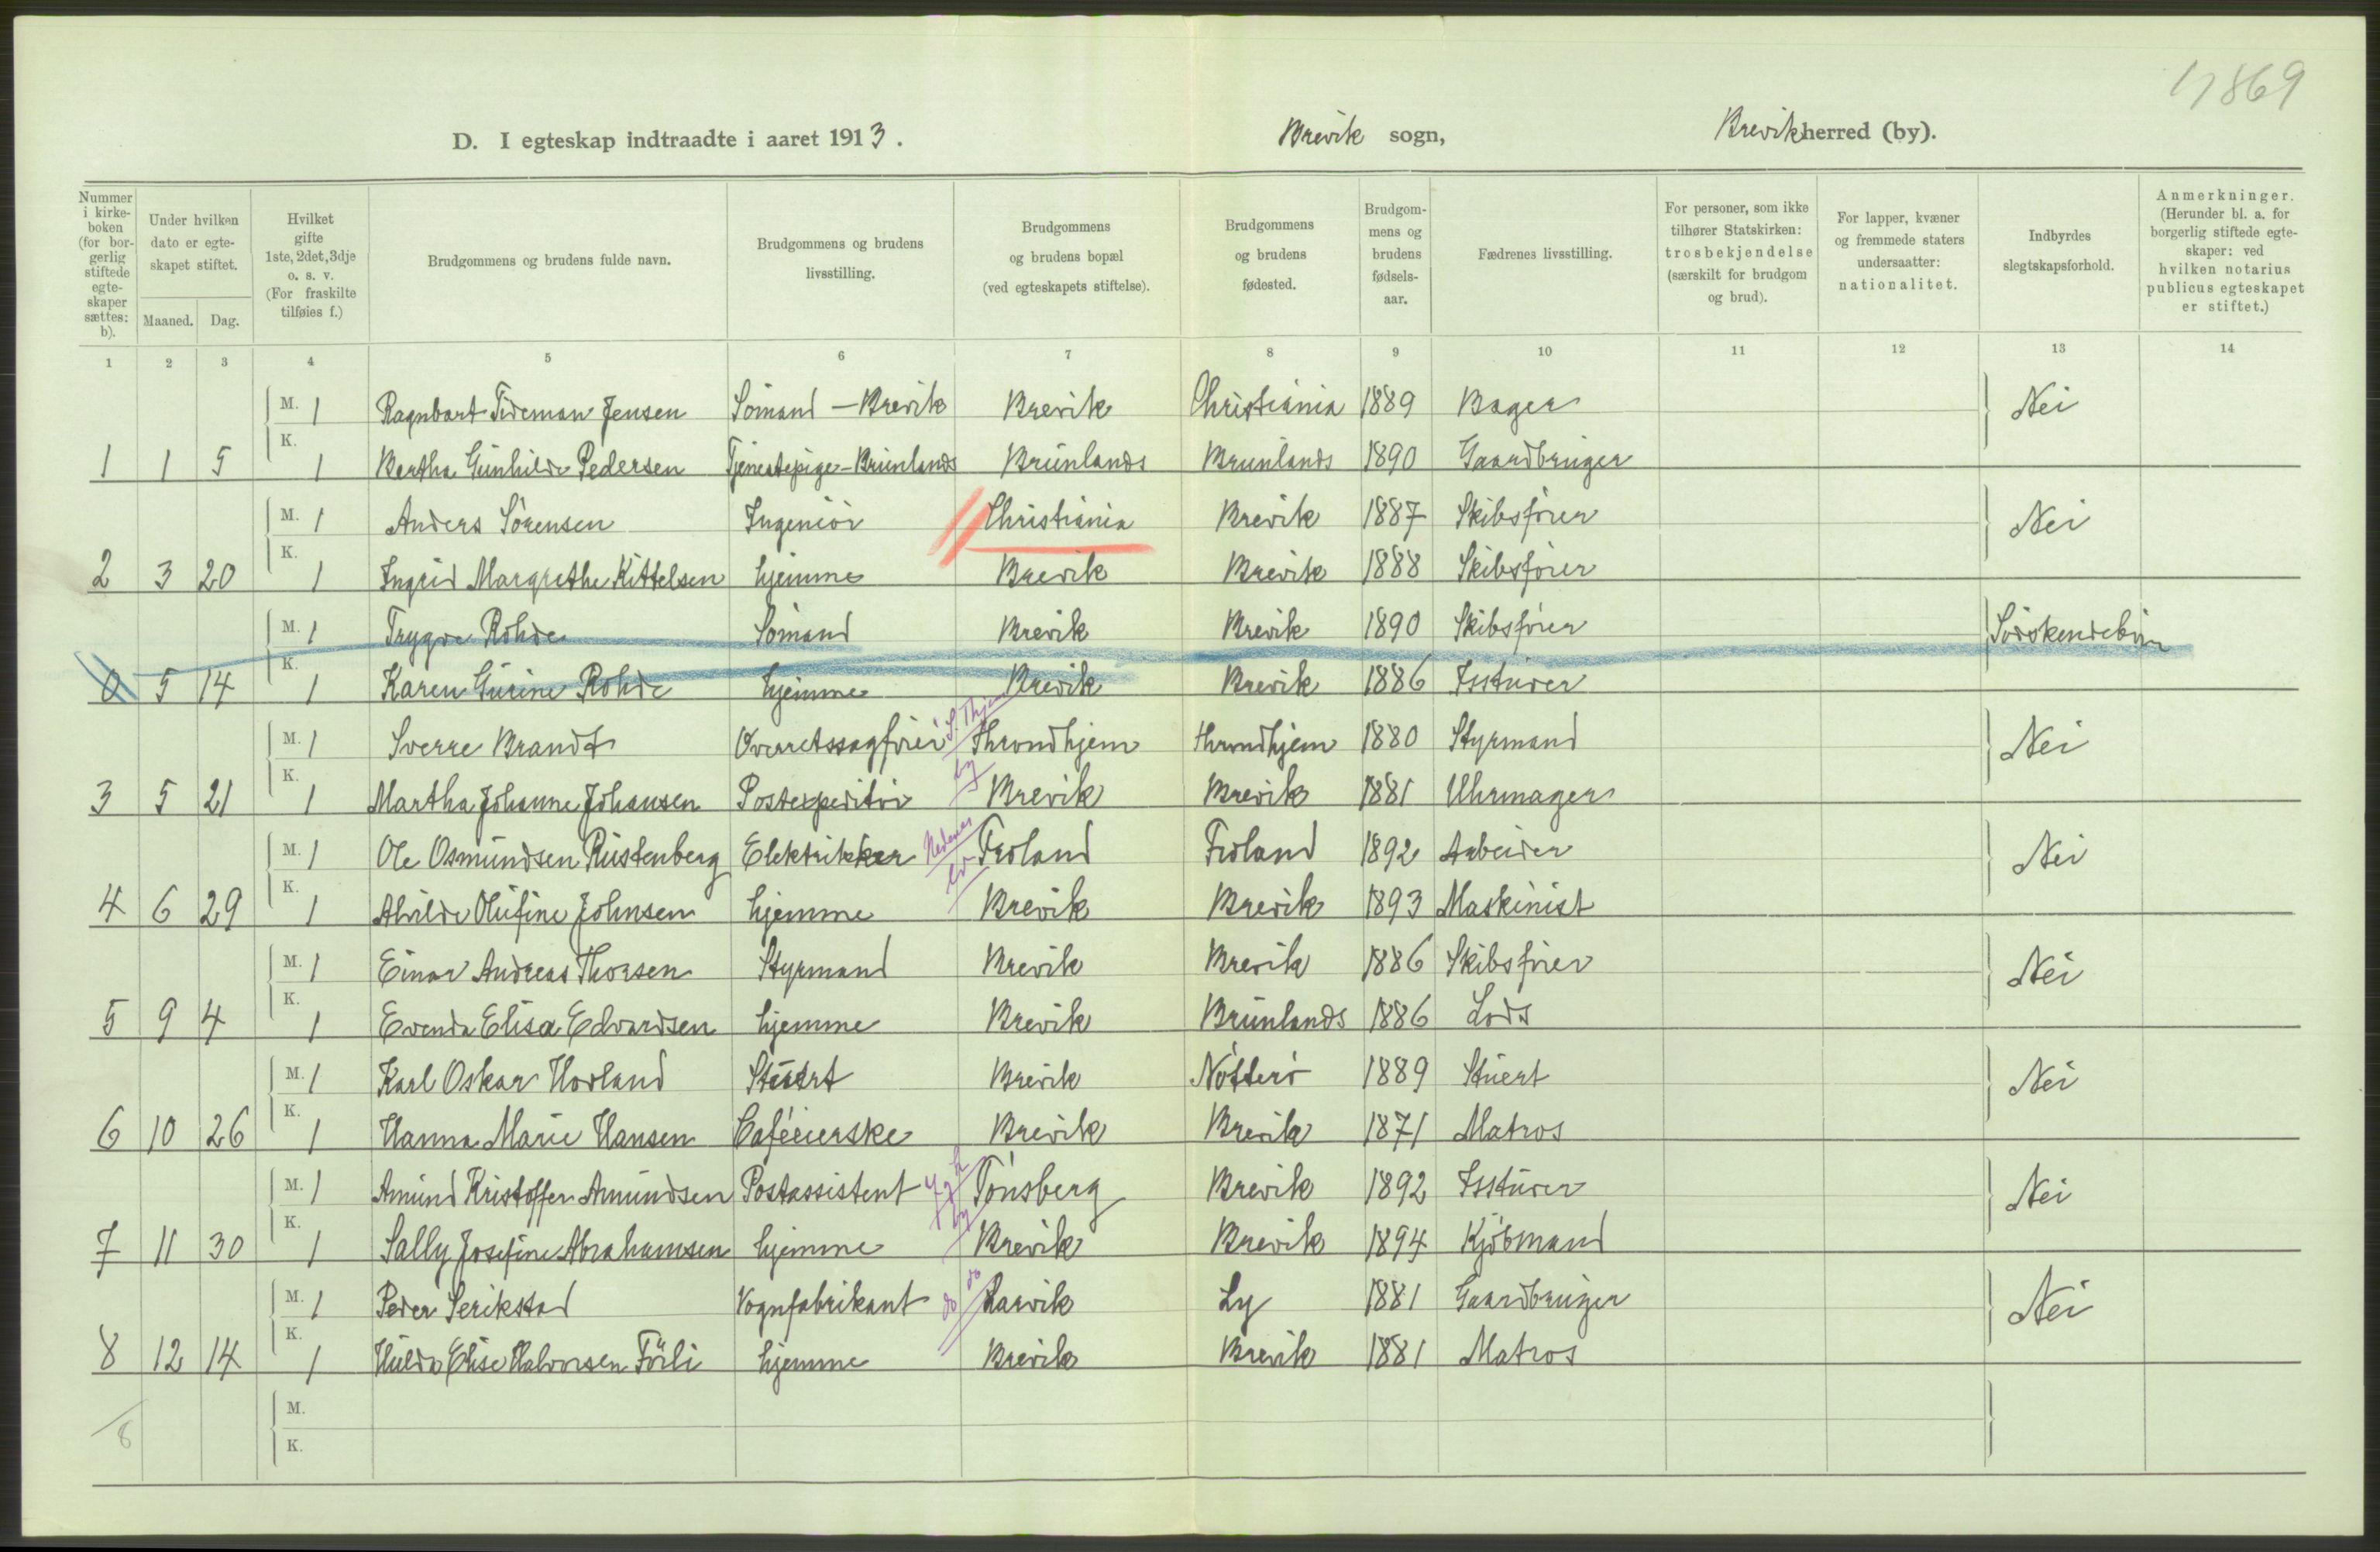 17869
D. I egteskap indtraadte i aaret 1913. Brevik sogn, Brevik herred (by).
Nummer i kirkeboken (for borgerlig stiftede egteskaper sættes: b). Under hvilken dato er egteskapet stiftet. Maaned. Dag. Hvilket gifte 1ste, 2det, 3dje o. s. v. (For fraskilte tilføies f.) Brudgommens og brudens fulde navn. Brudgommens og brudens livsstilling. Brudgommens og brudens bopæl (ved egteskapets stiftelse). Brudgommens og brudens fødested. Brudgommens og brudens fødselsaar. Fædrenes livsstilling. For personer, som ikke tilhører Statskirken: trosbekjendelse (særskilt for brudgom og brud). For lapper, kvæner og fremmede staters undersaatter: nationalitet. Indbyrdes slegtskapsforhold. Anmerkninger. (Herunder bl. a. for borgerlig stiftede egteskaper: ved hvilken notarius publicus egteskapet er stiftet.)
1 2 3 4 5 6 7 8 9 10 11 12 13 14
M. 1 Ragnbart Tideman Jensen Sömand - Brevik Brevik Christiania 1889 Bager Nei
1 1 5 K. 1 Bertha Gunhilde Pedersen Tjenestepige - Brunlands Brunlands Brunlands 1890 Gaardbruger
M. 1 Anders Sörensen Ingeniör Christiania Brevik 1887 Skibsförer Nei
2 3 20 K. 1 Ingrid Margrethe Kittelsen hjemme Brevik Brevik 1888 Skibsförer
M. 1 Trygve Rohde Sömand Brevik Brevik 1890 Skibsförer Södskendebörn
0 5 14 K. 1 Karen Gurine Rohde hjemme Brevik Brevik 1886 Isstuver
M. 1 Sverre Brandt Overretssagförer S. Thjem Throndhjem Throndhjem 1880 Styrmand Nei
3 5 21 K. 1 Martha Johanne Johansen Postexpeditör by Brevik Brevik 1881 Uhrmager
M. 1 Ole Osmundsen Rustenberg Elektrikker Nedenes Froland Froland 1892 Arbeider Nei
4 6 29 K. 1 Alvilde Olufine Johnsen hjemme Brevik Brevik 1893 Maskinist
M. 1 Einar Andreas Thorsen Styrmand Brevik Brevik 1886 Skibsförer Nei
5 9 4 K. 1 Evenda Elisa Edvardsen hjemme Brevik Brunlands 1886 Lods
M. 1 Karl Oskar Hovland Stuert Brevik Nötterö 1889 Stuert Nei
6 10 26 K. 1 Hanna Marie Hansen Caféeierske Brevik Brevik 1871 Matros
M. 1 Amund Kristoffer Amundsen Postassistent Tönsberg Brevik 1892 Isstuver Nei
7 11 30 K. 1 Sally Josefine Abrahamsen hjemme by Brevik Brevik 1894 Kjöbmand
M. 1 Peder Serikstad Vognfabrikant do do Larvik Ly 1881 Gaardbruger Nei
8 12 14 K. 1 Hulda Elise Halvorsen Förli hjemme Brevik Brevik 1881 Matros
M.
8 K.